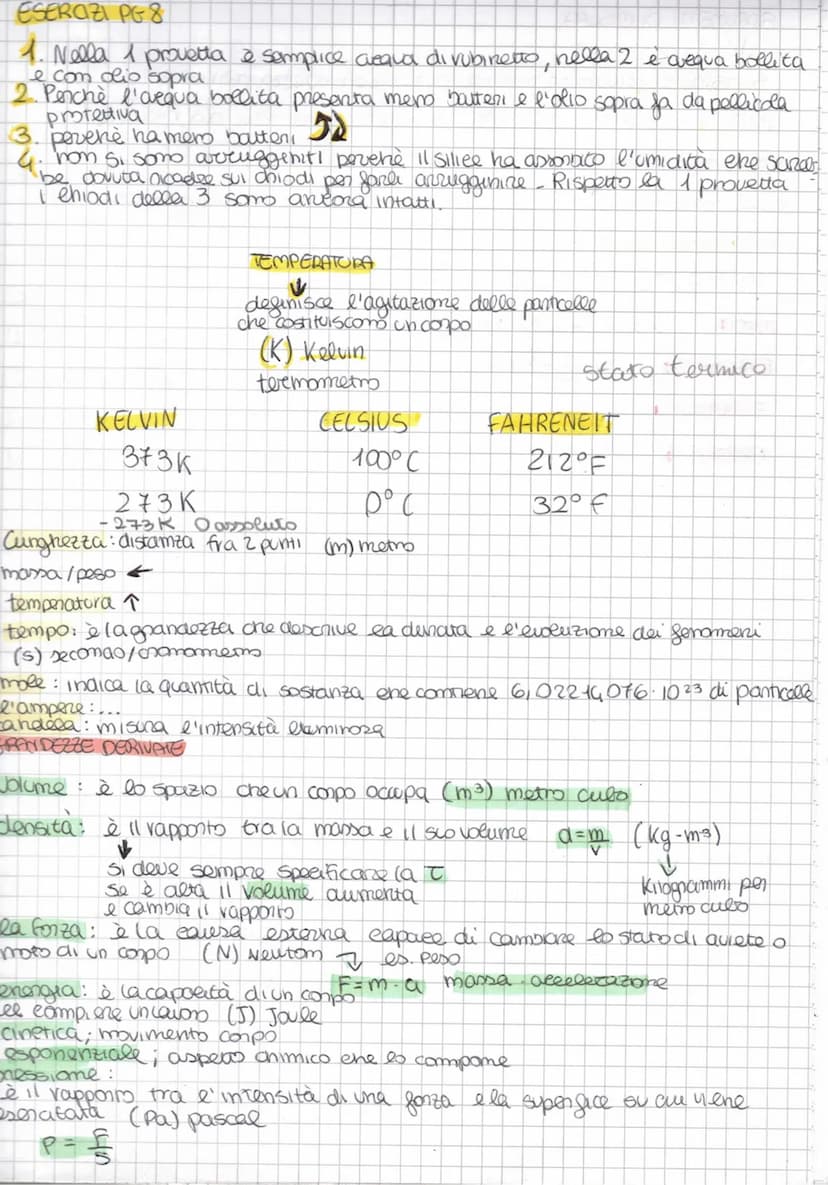 ESERCIZI PG 8
1. Nella 1 provetta è semplice acqua di rubinetto, nella 2 è acqua bollita
e con olio sopra
2. Perchè l'acqua bollita presenta meno batteri e l'olio sopra fa da pellicola
protettiva
3. perchè ha meno batteri
4. non si sono arrugginiti perchè il silice ha assorbito l'umidità che sareb
be dovuta ricadere sui chiodi per farli arrugginire - Rispetto la 1 provetta
i chiodi della 3 sono ancora intatti.
TEMPERATURA
↓
definisce l'agitazione delle particelle
che costituiscono un corpo
(K) Kelvin
termometro
stato termico
KELVIN CELSIUS FAHRENEIT
373K 100°C 212°F
273K 0°C 32°F
-273K 0 assoluto
lunghezza: distanza fra 2 punti (m) metro
massa/peso ←
temperatura ↑
tempo: è la grandezza che descrive la durata e l'evoluzione dei fenomeni
(s) secondo/cronometro
mole: indica la quantità di sostanza che contiene 6,02214076·10²³ di particelle
l'ampere: ...
candela: misura l'intensità luminosa
GRANDEZZE DERIVATE
volume: è lo spazio che un corpo occupa (m³) metro cubo
densità: è il rapporto tra la massa e il suo volume d=m/v (kg-m³)
↓ ↓
si deve sempre specificare la T
se è alta il volume aumenta
e cambia il rapporto
Kilogrammi per
metro cubo
la forza: è la causa esterna capace di cambiare lo stato di quiete o
moto di un corpo (N) Newton → es. peso
F=m·a massa·accelerazione
energia: è la capacità di un corpo
di compiere un lavoro (J) Joule
cinetica; movimento corpo
esponenziale; aspetto chimico che lo compone
pressione:
è il rapporto tra l'intensità di una forza e la superfice su cui viene
esercitata (Pa) pascal
P = F/S